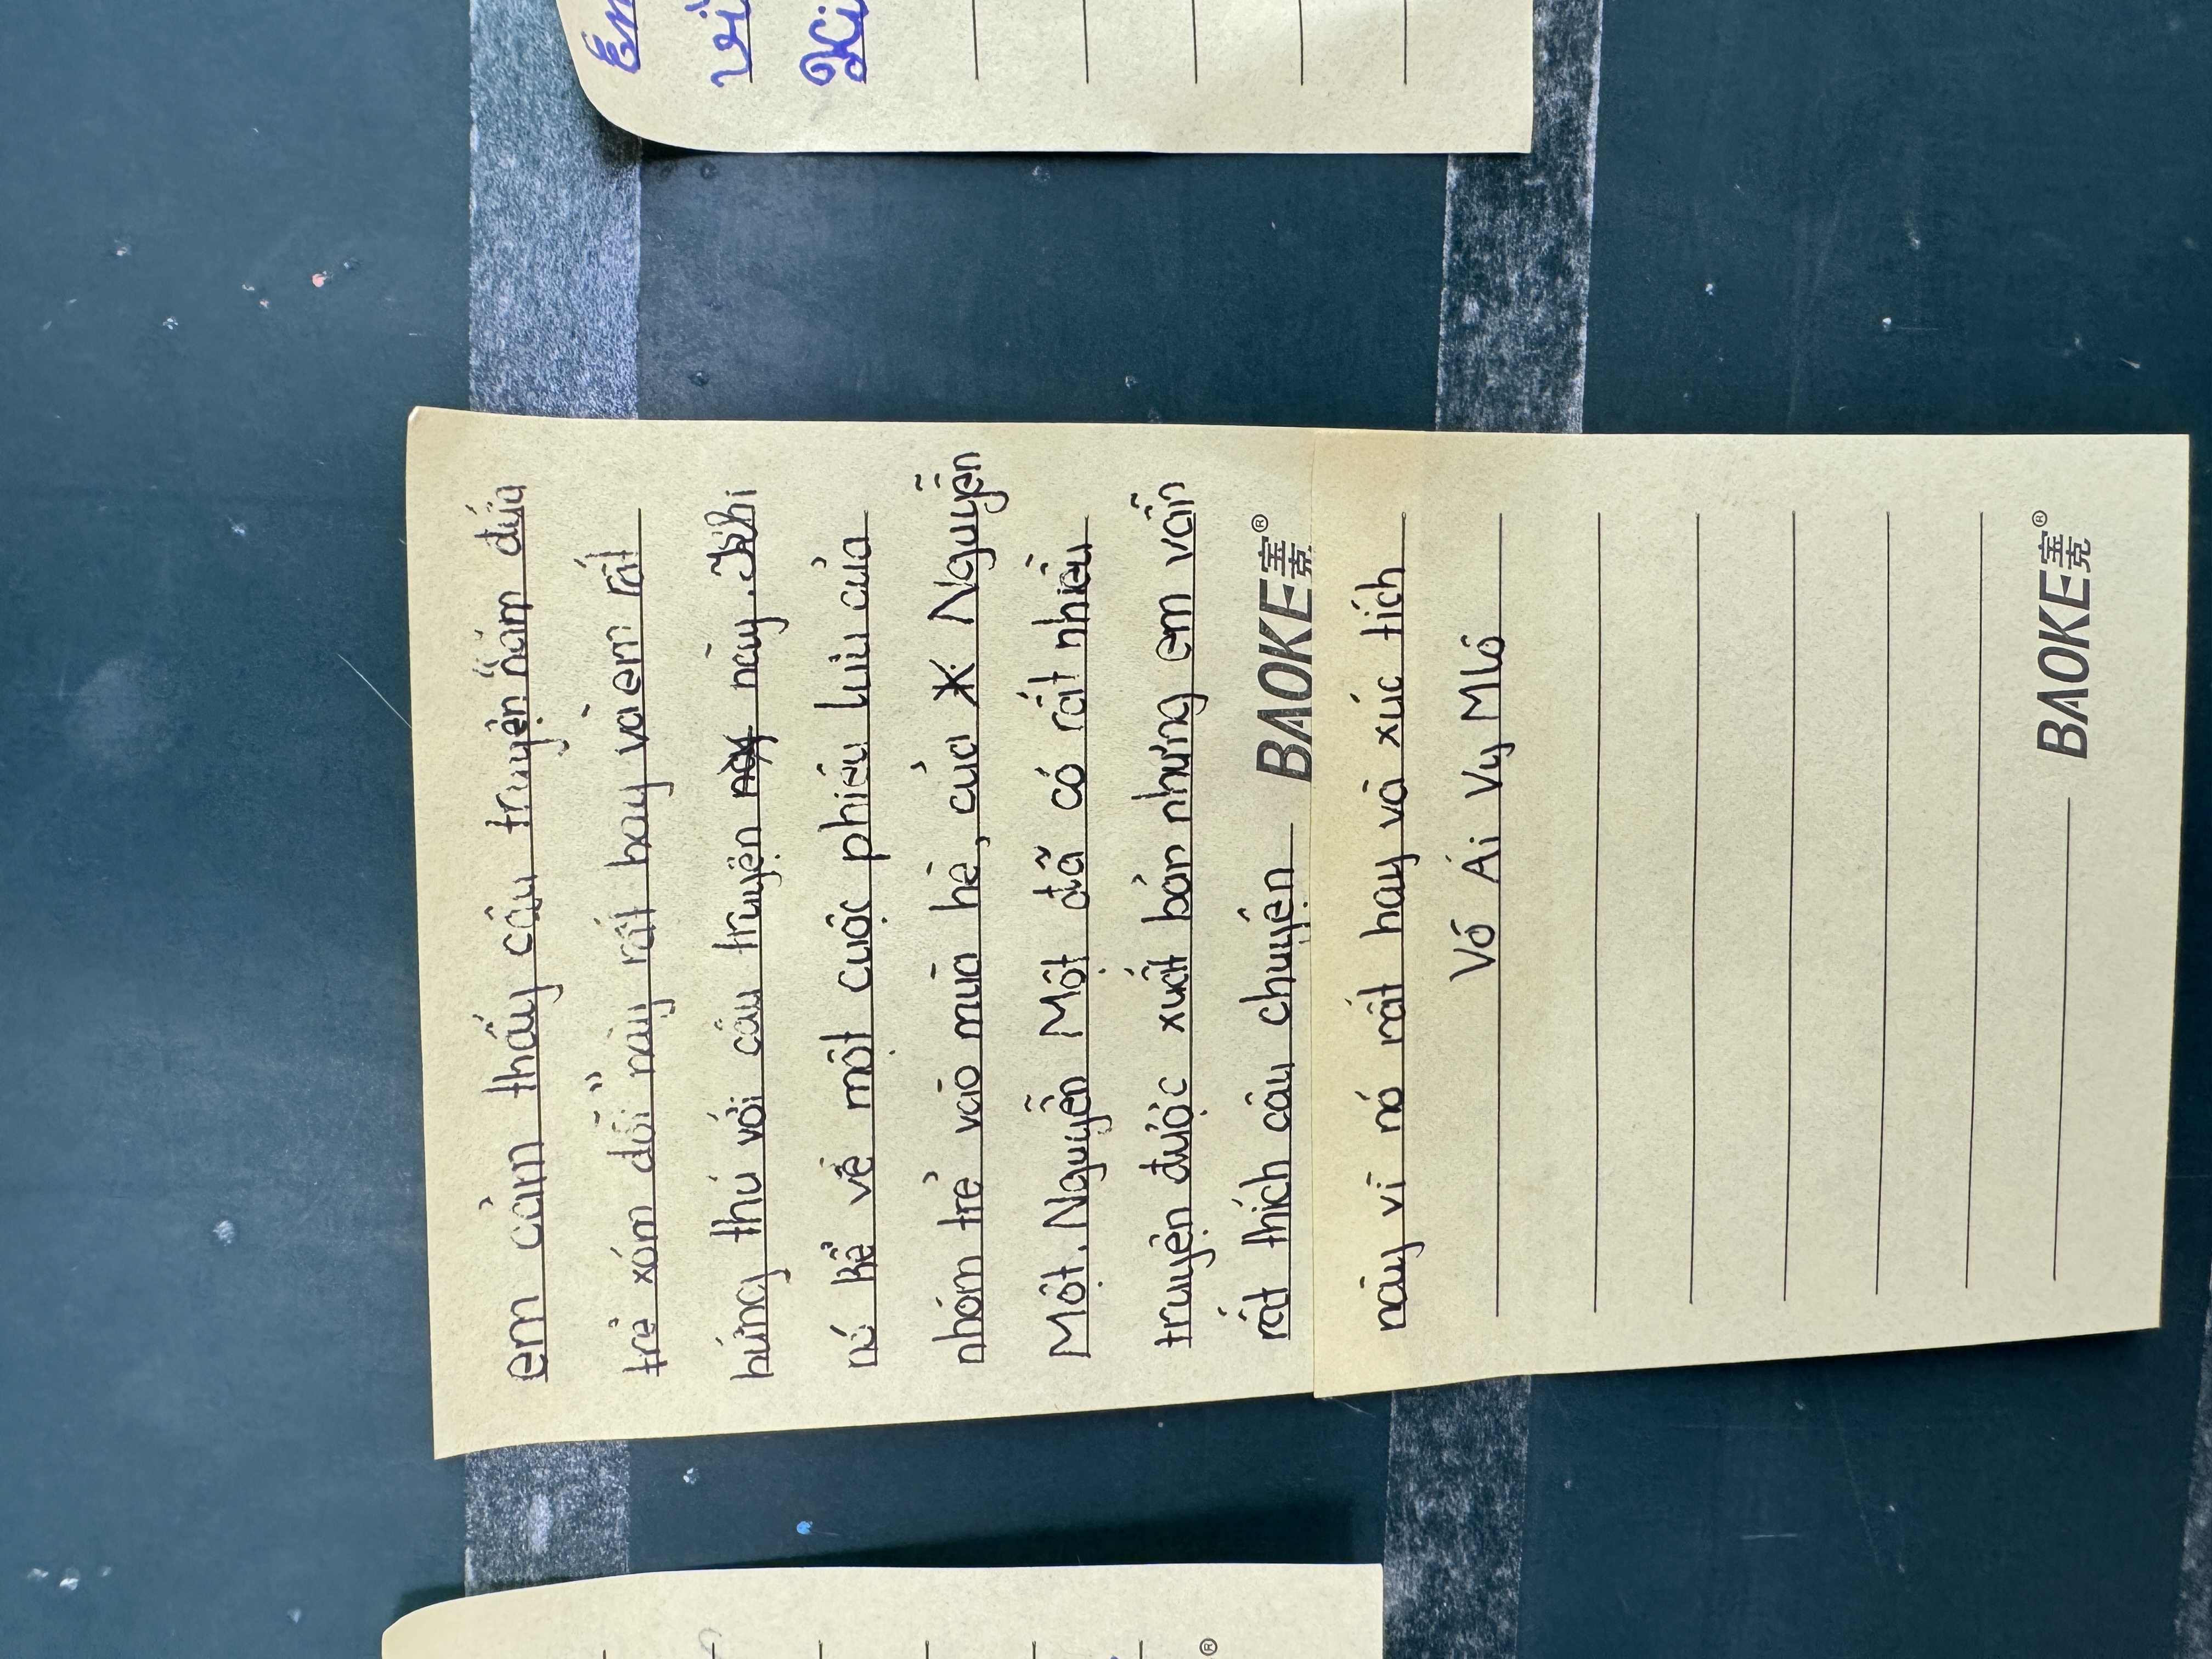 em cảm thấy câu truyện "năm đứa
trẻ xóm đồi" này rất hay và em rất
hứng thú với câu truyện này. Khi
nó kể về một cuộc phiêu lưu của
nhóm trẻ vào mùa hè, của Nguyễn
Một. Nguyễn Một đã có rất nhiều
truyện được xuất bản nhưng em vẫn
rất thích câu chuyện
BAOKE宝克®
này vì nó rất hay và xúc tích
Võ Ái Vy
BAOKE宝克®
Em